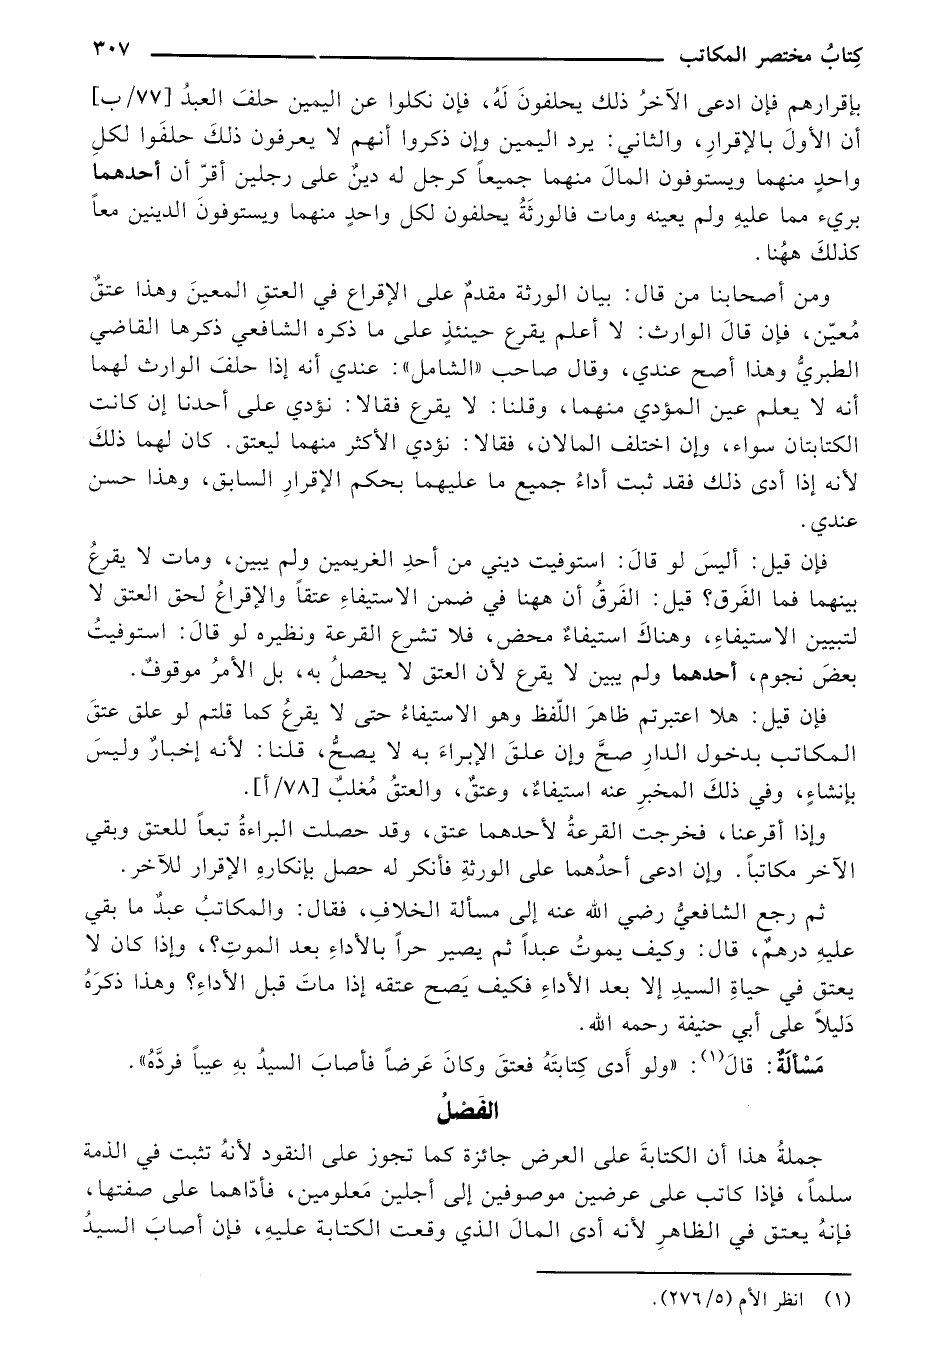 كِتابُ مختصر المكاتب ٣٠٧
بإقرارهم فإن ادعى الآخرُ ذلك يحلفونَ لَهُ، فإن نكلوا عن اليمين حلفَ العبدُ [٧٧/ب]
أن الأولَ بالإقرارِ، والثاني: يرد اليمين وإن ذكروا أنهم لا يعرفون ذلكَ حلفَوا لكلِ
واحدٍ منهما ويستوفون المالَ منهما جميعاً كرجل له دينٌ على رجلين أقرّ أن أحدهما
بريء مما عليهِ ولم يعينه ومات فالورثَةُ يحلفون لكل واحدٍ منهما ويستوفونَ الدينين معاً
كذلكَ ههُنا.
ومن أصحابنا من قال: بيان الورثة مقدمٌ على الإقراع في العتقِ المعينَ وهذا عتقٌ
مُعيّن، فإن قالَ الوارث: لا أعلم يقرع حينئذٍ على ما ذكره الشافعي ذكرها القاضي
الطبريُّ وهذا أصح عندي، وقال صاحب «الشامل»: عندي أنه إذا حلفَ الوارث لهما
أنه لا يعلم عين المؤدي منهما، وقلنا: لا يقرع فقالا: نؤدي على أحدنا إن كانت
الكتابتان سواء، وإن اختلف المالان، فقالا: نؤدي الأكثر منهما ليعتق. كان لهما ذلكَ
لأنه إذا أدى ذلك فقد ثبت أداءُ جميع ما عليهما بحكم الإقرارِ السابق، وهذا حسن
عندي.
فإن قيل: أليسَ لو قالَ: استوفيت ديني من أحدِ الغريمين ولم يبين، ومات لا يقرعُ
بينهما فما الفَرق؟ قيل: الفَرقُ أن ههنا في ضمن الاستيفاءِ عتقاً والإقراعُ لحق العتق لا
لتبيين الاستيفاءِ، وهناكَ استيفاءٌ محض، فلا تشرع القرعة ونظيره لو قالَ: استوفيتُ
بعضَ نجوم، أحدهما ولم يبين لا يقرع لأن العتق لا يحصلُ به، بل الأمرُ موقوفٌ.
فإن قيل: هلا اعتبرتم ظاهرَ اللّفظ وهو الاستيفاءُ حتى لا يقرعُ كما قلتم لو علق عتقَ
المكاتب بدخول الدارِ صحَّ وإن علقَ الإبراءَ به لا يصحُّ، قلنا: لأنه إخبارٌ وليسَ
بإنشاءٍ، وفي ذلكَ المخبرِ عنه استيفاءٌ، وعتقٌ، والعتقُ مُغلبٌ [٧٨/أ].
وإذا أقرعنا، فخرجت القرعةُ لأحدهما عتق، وقد حصلت البراءةُ تبعاً للعتق وبقي
الآخر مكاتباً. وإن ادعى أحدُهما على الورثةِ فأنكر له حصل بإنكارهِ الإقرار للآخر.
ثم رجع الشافعيُّ رضي الله عنه إلى مسألة الخلافِ، فقال: والمكاتبُ عبدٌ ما بقي
عليهِ درهمٌ، قال: وكيف يموتُ عبداً ثم يصير حراً بالأداءِ بعد الموتِ؟، وإذا كان لا
يعتق في حياةِ السيدِ إلا بعد الأداءِ فكيف يَصح عتقه إذا ماتَ قبل الأداءِ؟ وهذا ذكرَهُ
دَليلاً على أبي حنيفة رحمه الله.
مَسْألَةٌ: قالَ(١): «ولو أَدى كِتابتَهُ فعتقَ وكانَ عَرضاً فأصابَ السيدُ بهِ عيباً فردَّهُ».
الفَصْلُ
جملةُ هذا أن الكتابةَ على العرض جائزة كما تجوز على النقود لأنهُ تثبت في الذمة
سلماً، فإذا كاتب على عرضين موصوفين إلى أجلين مَعلومين، فأدّاهما على صفتها،
فإنهُ يعتق في الظاهرِ لأنه أدى المالَ الذي وقعت الكتابة عليهِ، فإن أصابَ السيدُ
(١) انظر الأم (٢٧٦/٥).